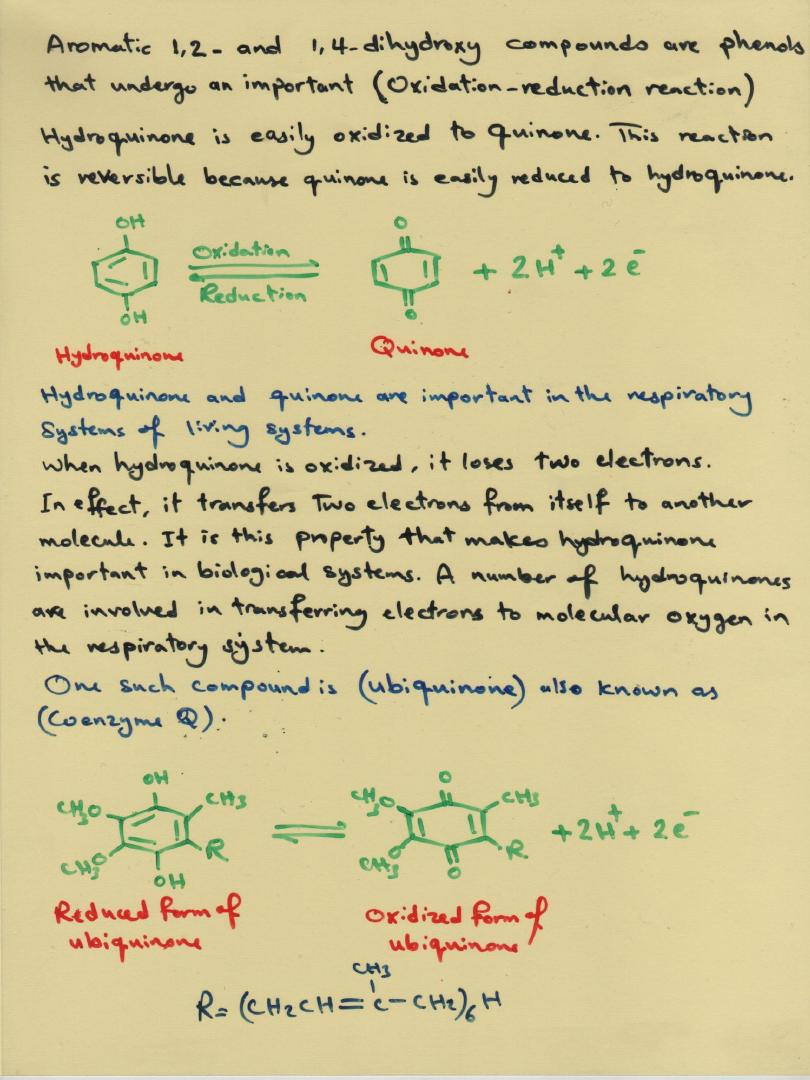 Aromatic 1,2- and 1,4-dihydroxy compounds are phenols
that undergo an important (Oxidation-reduction reaction)
Hydroquinone is easily oxidized to quinone. This reaction
is reversible because quinone is easily reduced to hydroquinone.
OH O
Oxidation
+ 2H+ + 2e-
Reduction
OH O
Hydroquinone Quinone
Hydroquinone and quinone are important in the respiratory
Systems of living systems.
When hydroquinone is oxidized, it loses two electrons.
In effect, it transfers Two electrons from itself to another
molecule. It is this property that makes hydroquinone
important in biological systems. A number of hydroquinones
are involved in transferring electrons to molecular oxygen in
the respiratory system.
One such compound is (ubiquinone) also known as
(Coenzyme Q).
OH O
CH3O CH3 CH3O CH3
+ 2H+ + 2e-
CH3O R CH3O R
OH O
Reduced form of Oxidized form of
ubiquinone ubiquinone
CH3
R= (CH2CH=C-CH2)6H